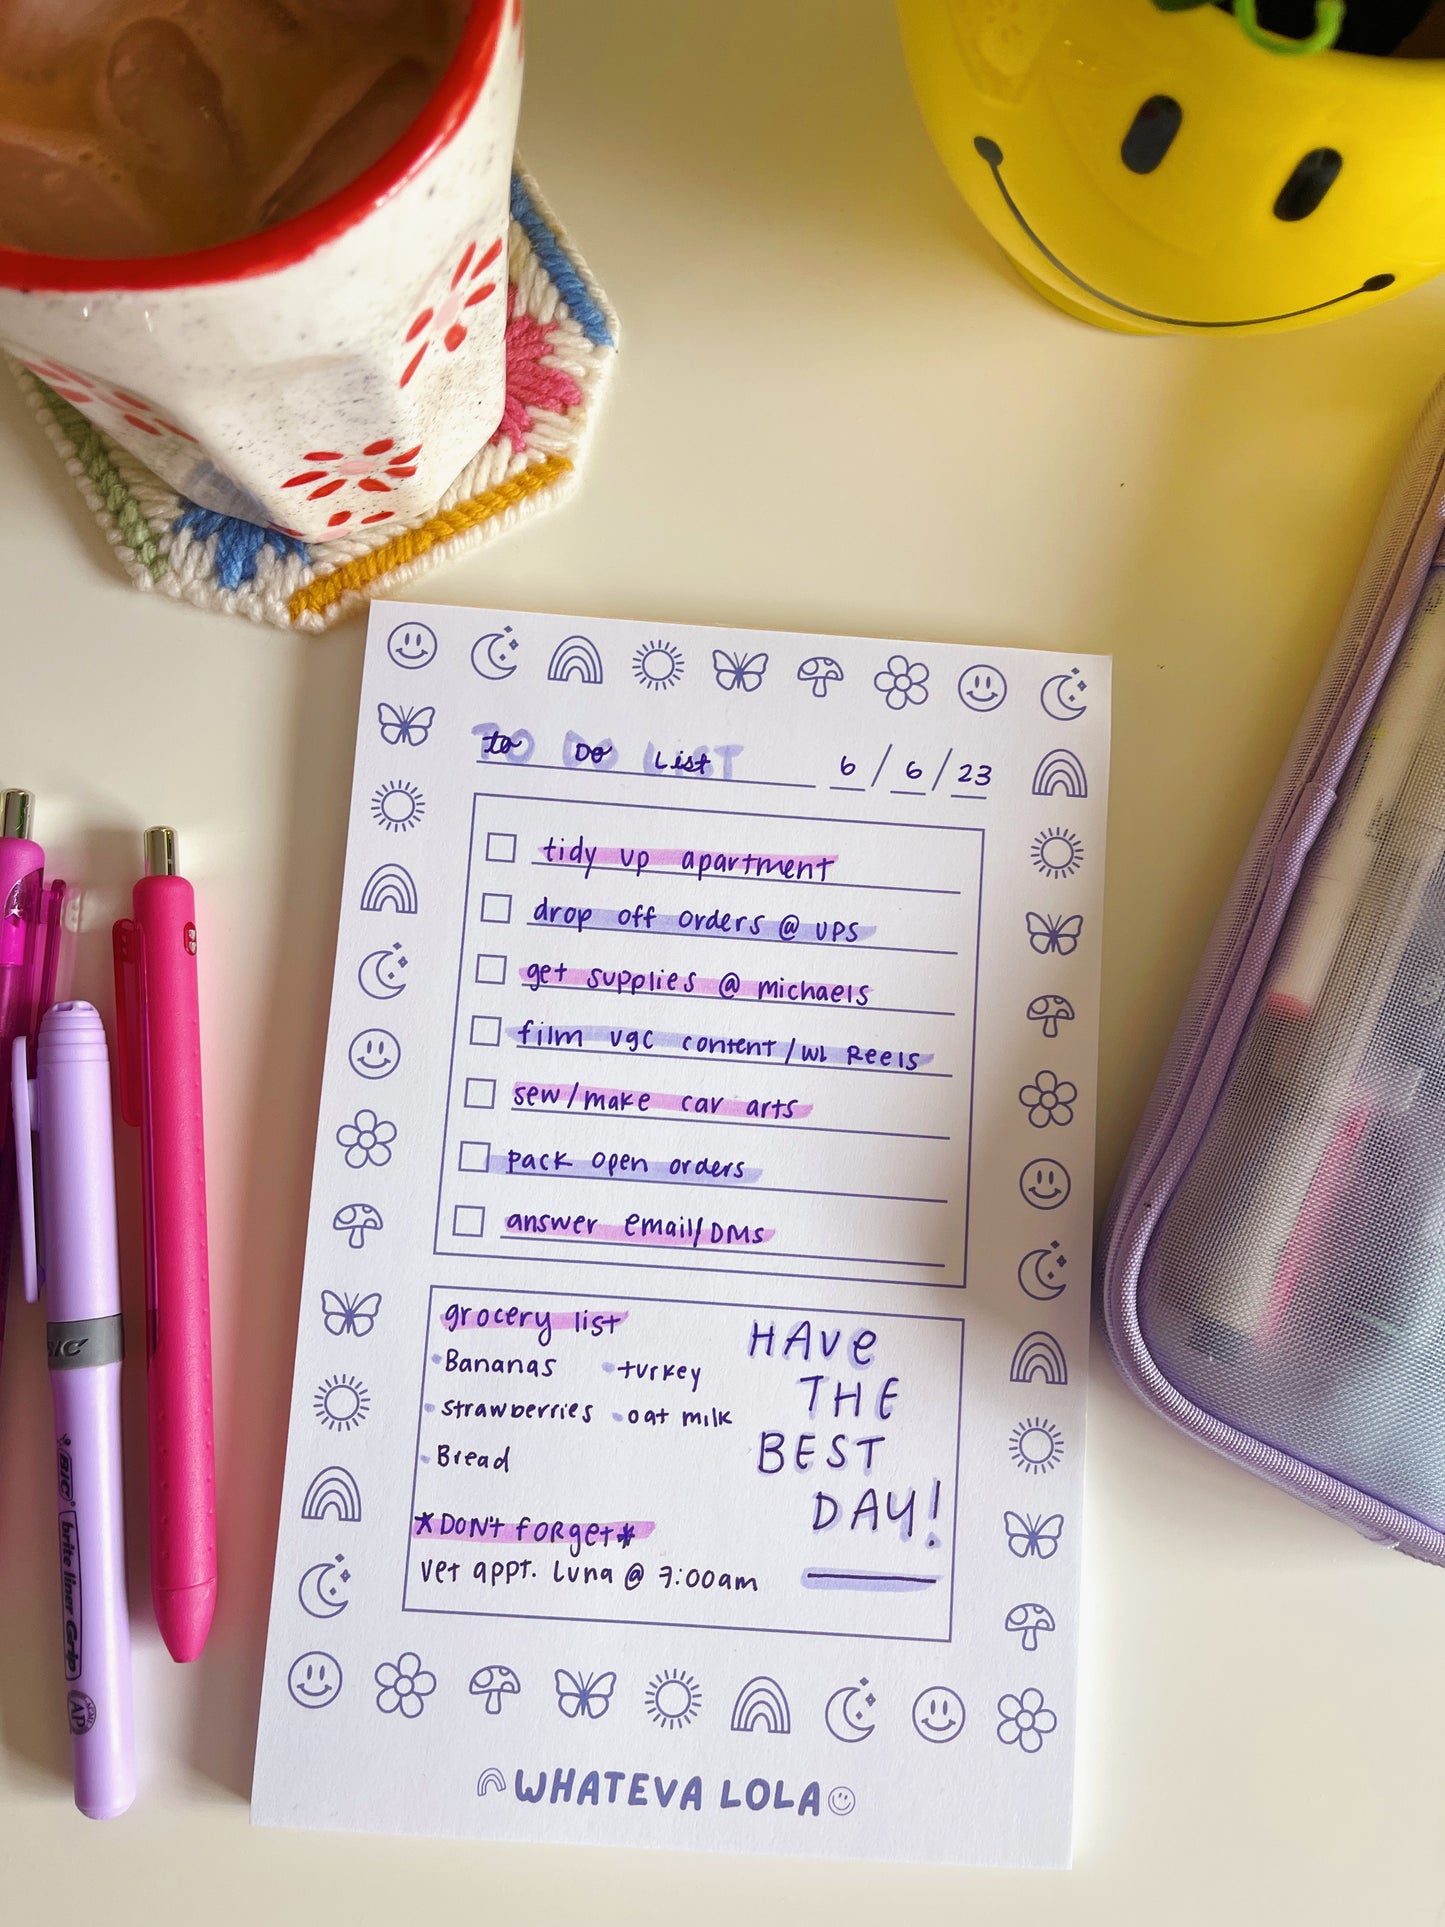 to Do List 6/6/23
tidy up apartment
drop off orders @ UPS
get supplies @ michaels
film vgc content/WL Reels
sew/make car arts
pack open orders
answer email/DMs
grocery list
• Bananas • turkey
• strawberries • oat milk
• Bread
*DON't FORget*
Vet appt. Luna @ 7:00am
HAVe
THE
BEST
DAY!
WHATEVA LOLA
BIC
BIC brite liner Grip
AP